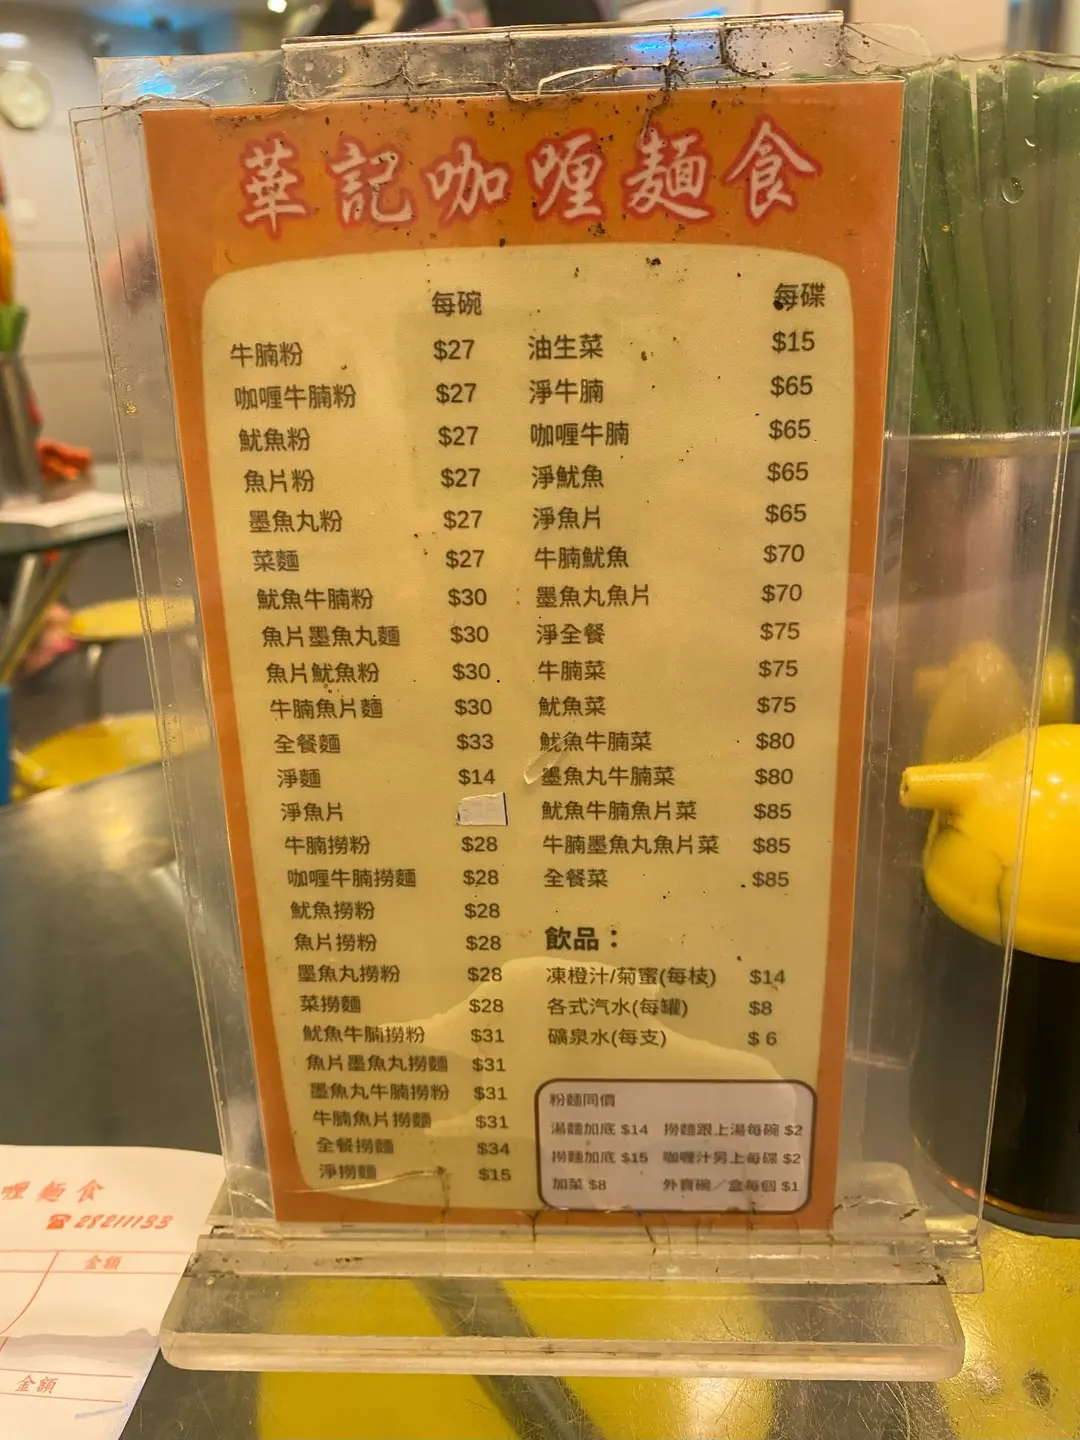 華記咖喱麵食
每碗
牛腩粉 $27
咖喱牛腩粉 $27
魷魚粉 $27
魚片粉 $27
墨魚丸粉 $27
菜麵 $27
魷魚牛腩粉 $30
魚片墨魚丸麵 $30
魚片魷魚粉 $30
牛腩魚片麵 $30
全餐麵 $33
淨麵 $14
淨魚片
牛腩撈粉 $28
咖喱牛腩撈麵 $28
魷魚撈粉 $28
魚片撈粉 $28
墨魚丸撈粉 $28
菜撈麵 $28
魷魚牛腩撈粉 $31
魚片墨魚丸撈麵 $31
墨魚丸牛腩撈粉 $31
牛腩魚片撈麵 $31
全餐撈麵 $34
淨撈麵 $15
每碟
油生菜 $15
淨牛腩 $65
咖喱牛腩 $65
淨魷魚 $65
淨魚片 $65
牛腩魷魚 $70
墨魚丸魚片 $70
淨全餐 $75
牛腩菜 $75
魷魚菜 $75
魷魚牛腩菜 $80
墨魚丸牛腩菜 $80
魷魚牛腩魚片菜 $85
牛腩墨魚丸魚片菜 $85
全餐菜 $85
飲品：
凍橙汁/菊蜜(每枝) $14
各式汽水(每罐) $8
礦泉水(每支) $ 6
粉麵同價
湯麵加底 $14 撈麵跟上湯每碗 $2
撈麵加底 $15 咖喱汁另上每碟 $2
加菜 $8 外賣碗／盒每個 $1
喱麵食
☎28211133
金額
金額